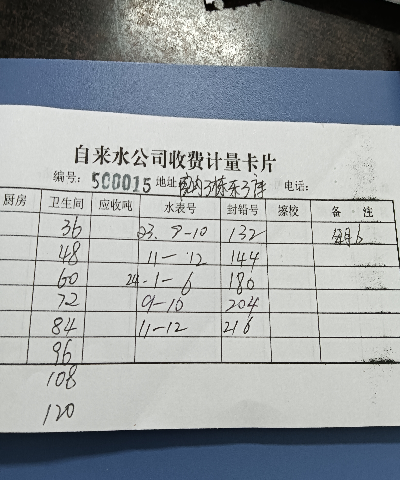 自来水公司收费计量卡片
编号: 500015 地址 3栋东3 电话:
厨房 卫生间 应收吨 水表号 封铅号 擦校 备 注
36 23. 9-10 132 每月6
48 11-12 144
60 24-1-6 180
72 9-10 204
84 11-12 216
96
108
120